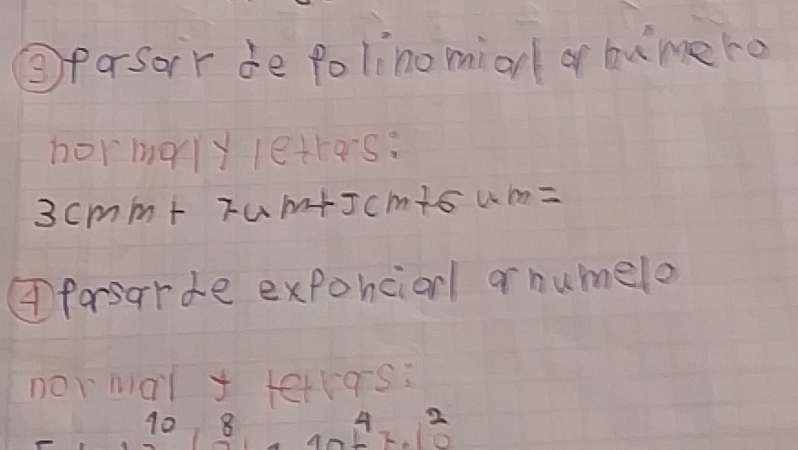 ③ pasar de polinomial a número
normal y letras:
3cmm + 7um+5cm+6 um=
④ pasar de exponcial a numero
normal y letras:
10 8 4 2